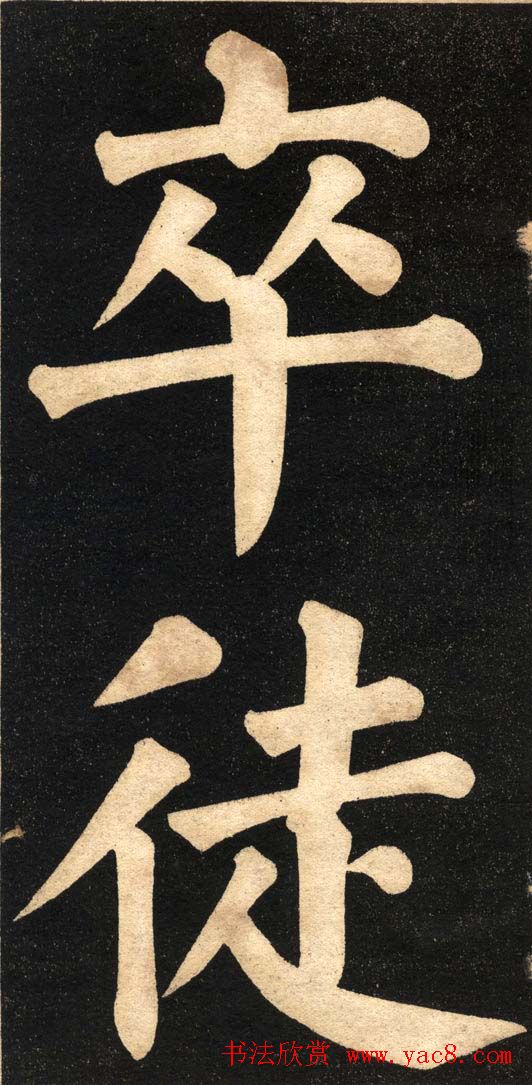 卒
徒
书法欣赏 www.yac8.com